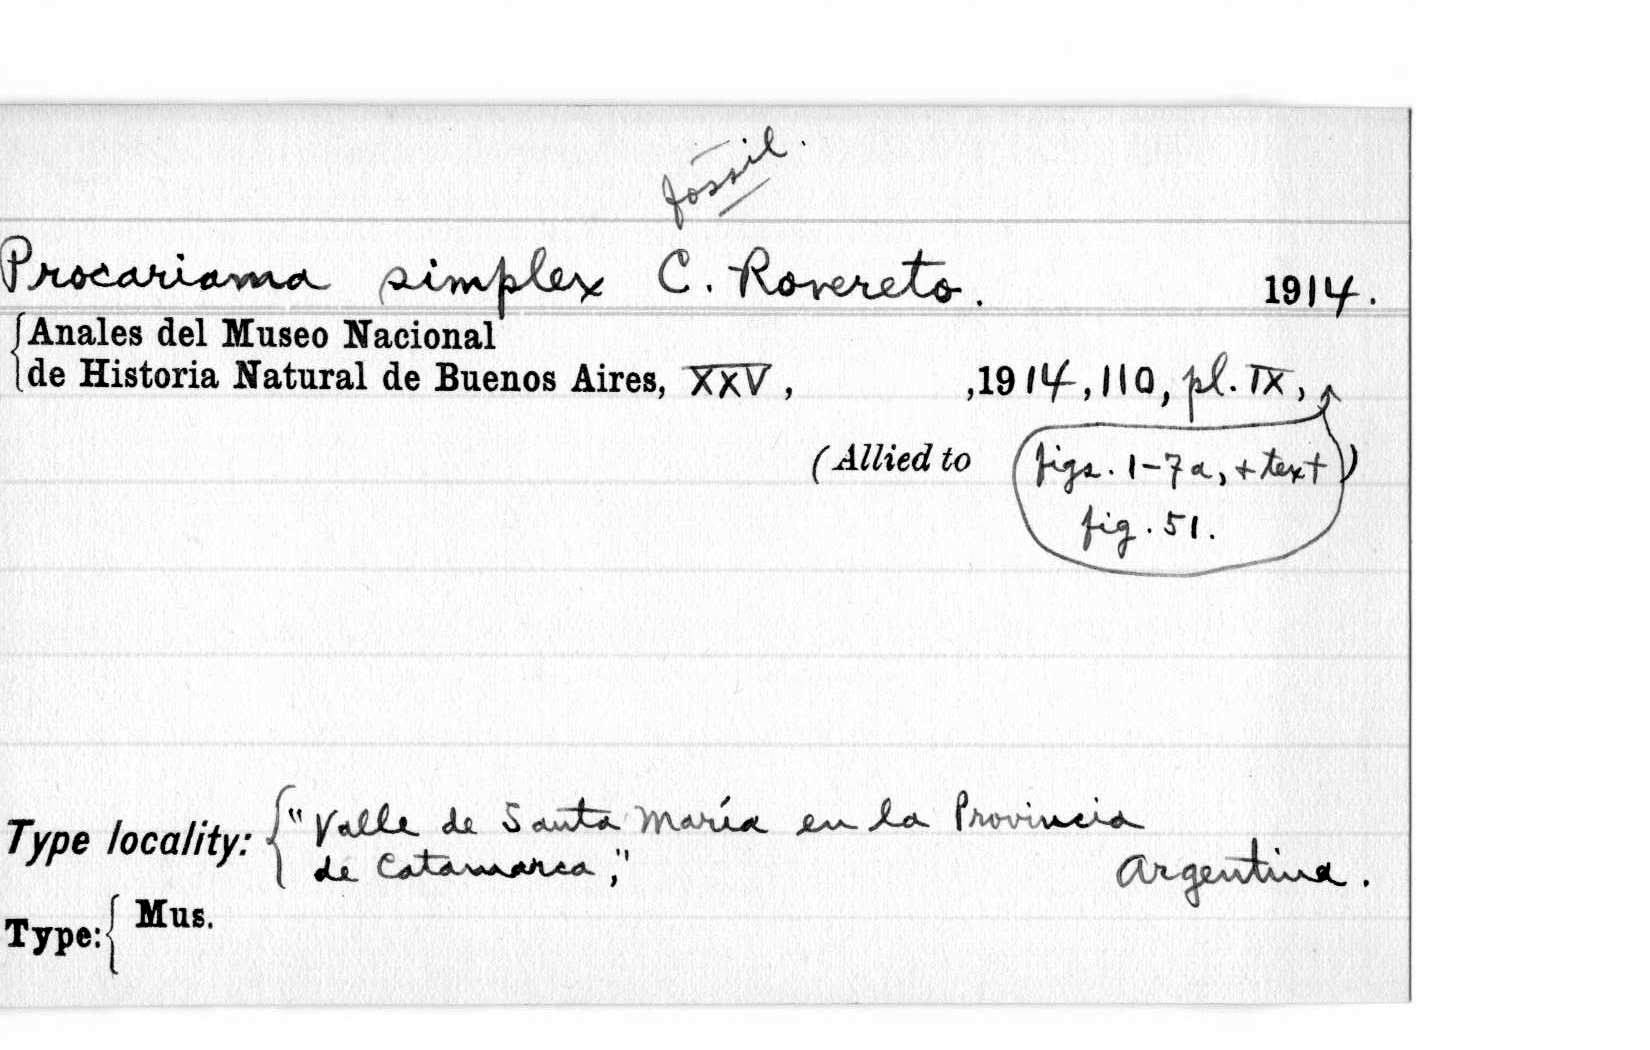 fossil.
Procariama simplex C. Rovereto. 1914.
Anales del Museo Nacional
de Historia Natural de Buenos Aires, XXV, ,1914, 110, pl. IX,
(Allied to figs. 1-7a, + text)
fig. 51.
Type locality: "Valle de Santa María en la Provincia
de Catamarca," Argentina.
Type: Mus.